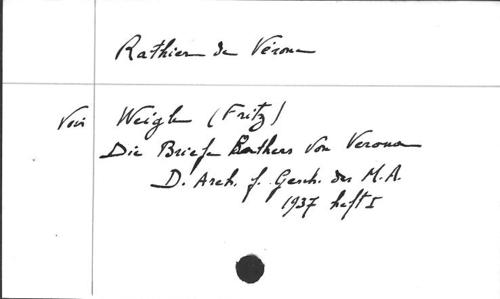 Rathier de Vérone
Voir Weigle (Fritz)
Die Briefe Rathers von Verona
D. Arch. f. Gesch. des M.A.
1937 heft I